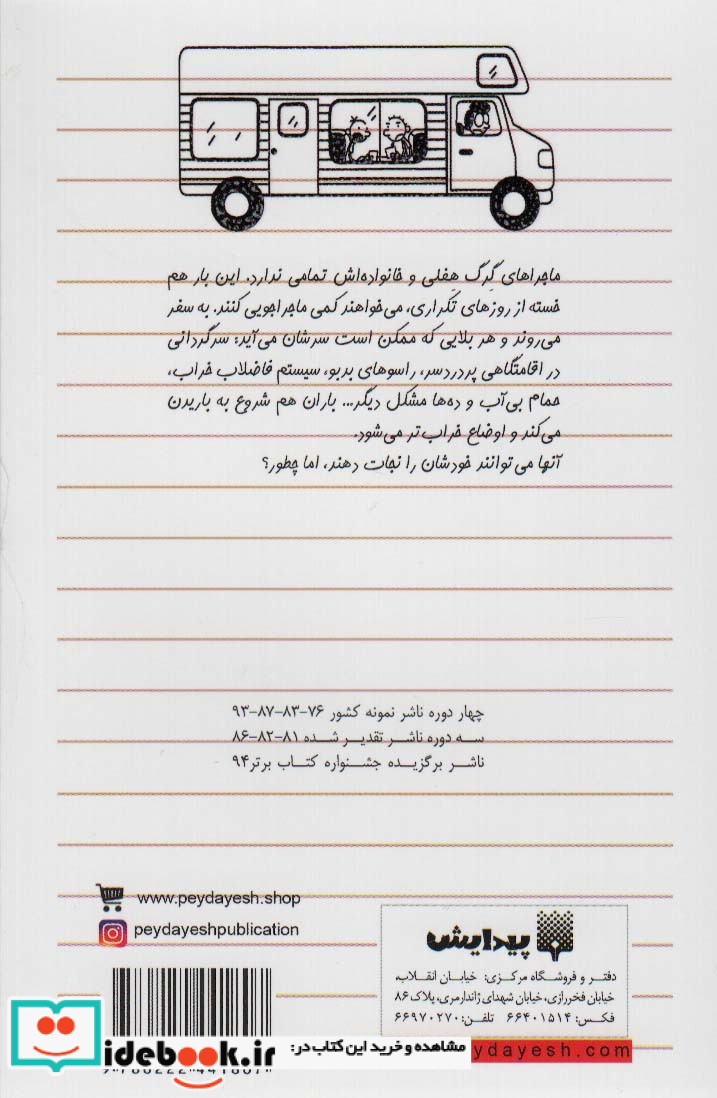 ماجراهای گِرِگ هِفلی و خانواده‌اش تمامی ندارد. این بار هم
خسته از روزهای تکراری، می‌خواهند کمی ماجراجویی کنند. به سفر
می‌روند و هر بلایی که ممکن است سرشان می‌آید: سرگردانی
در اقامتگاهی پردردسر، راسوهای بدبو، سیستم فاضلاب خراب،
حمام بی‌آب و ده‌ها مشکل دیگر... باران هم شروع به باریدن
می‌کند و اوضاع خراب‌تر می‌شود.
آنها می‌توانند خودشان را نجات دهند، اما چطور؟
چهار دوره ناشر نمونه کشور ۷۶-۸۳-۸۷-۹۳
سه دوره ناشر تقدیر شده ۸۱-۸۲-۸۶
ناشر برگزیده جشنواره کتاب برتر ۹۴
www.peydayesh.shop
peydayeshpublication
پیدایش
دفتر و فروشگاه مرکزی: خیابان انقلاب،
خیابان فخررازی، خیابان شهدای ژاندارمری، پلاک ۸۶
فکس: ۶۶۴۰۱۵۱۴ تلفن: ۶۶۹۷۰۲۷۰
ydayesh.com
مشاهده و خرید این کتاب در:
idebook.ir